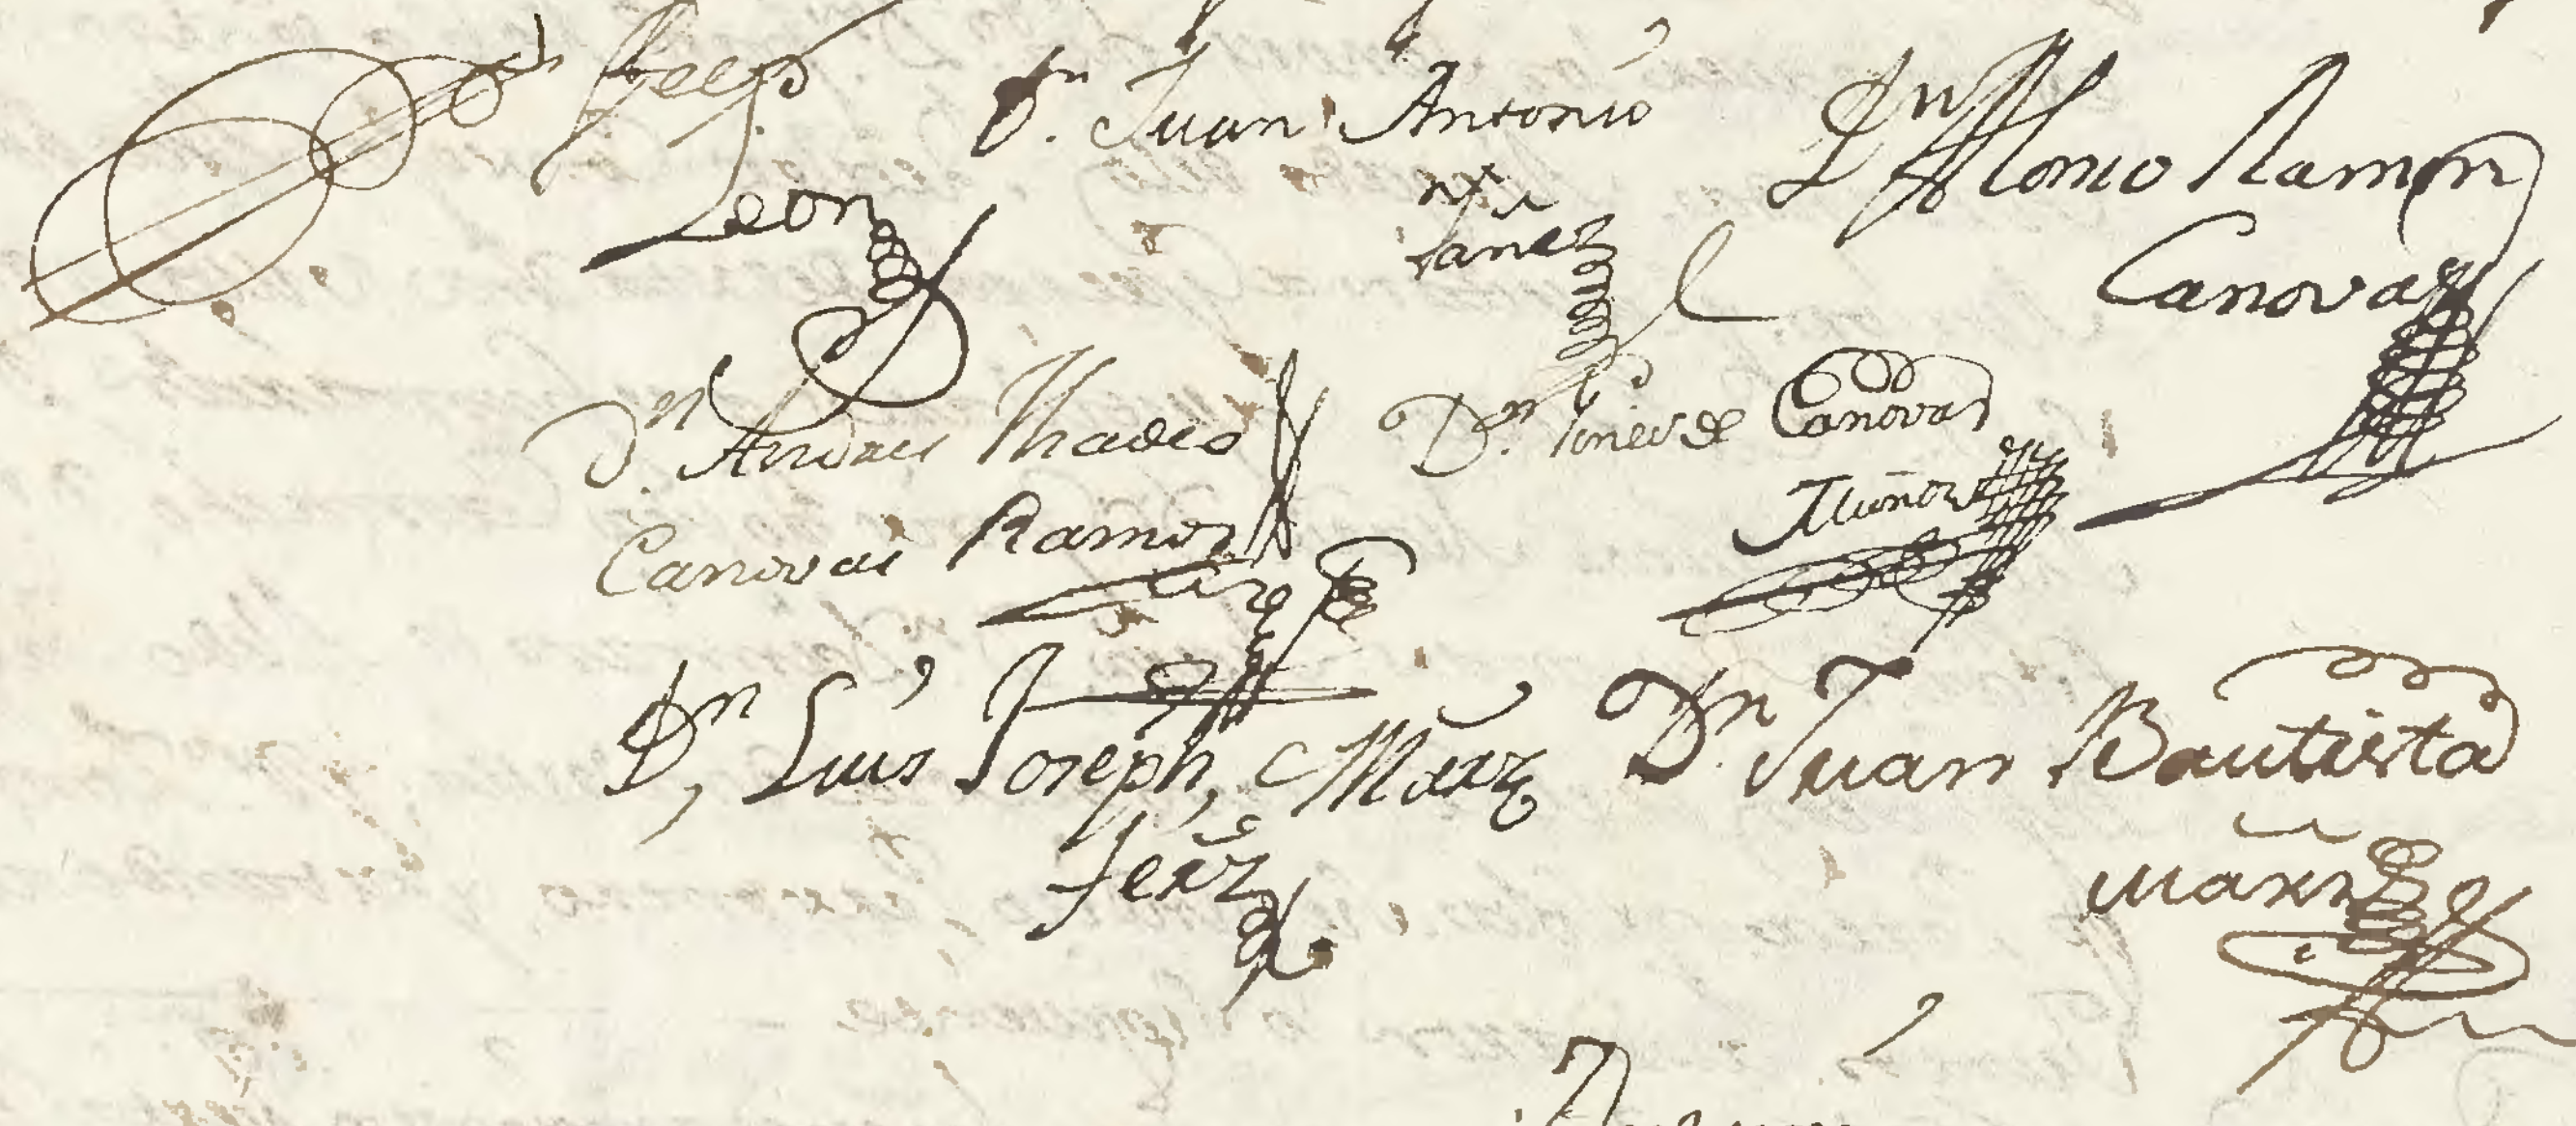 Leon
Dn. Juan Antonio
Mrñ Yañez
Dn Alonso Ramon
Canovas
Dn. Andres Thadeo
Canovas Ramos
Dn. Gines de Canovas
Muñoz
Dn, Luis Joseph, Marz
ferz
Dn. Juan Bautista
Marz